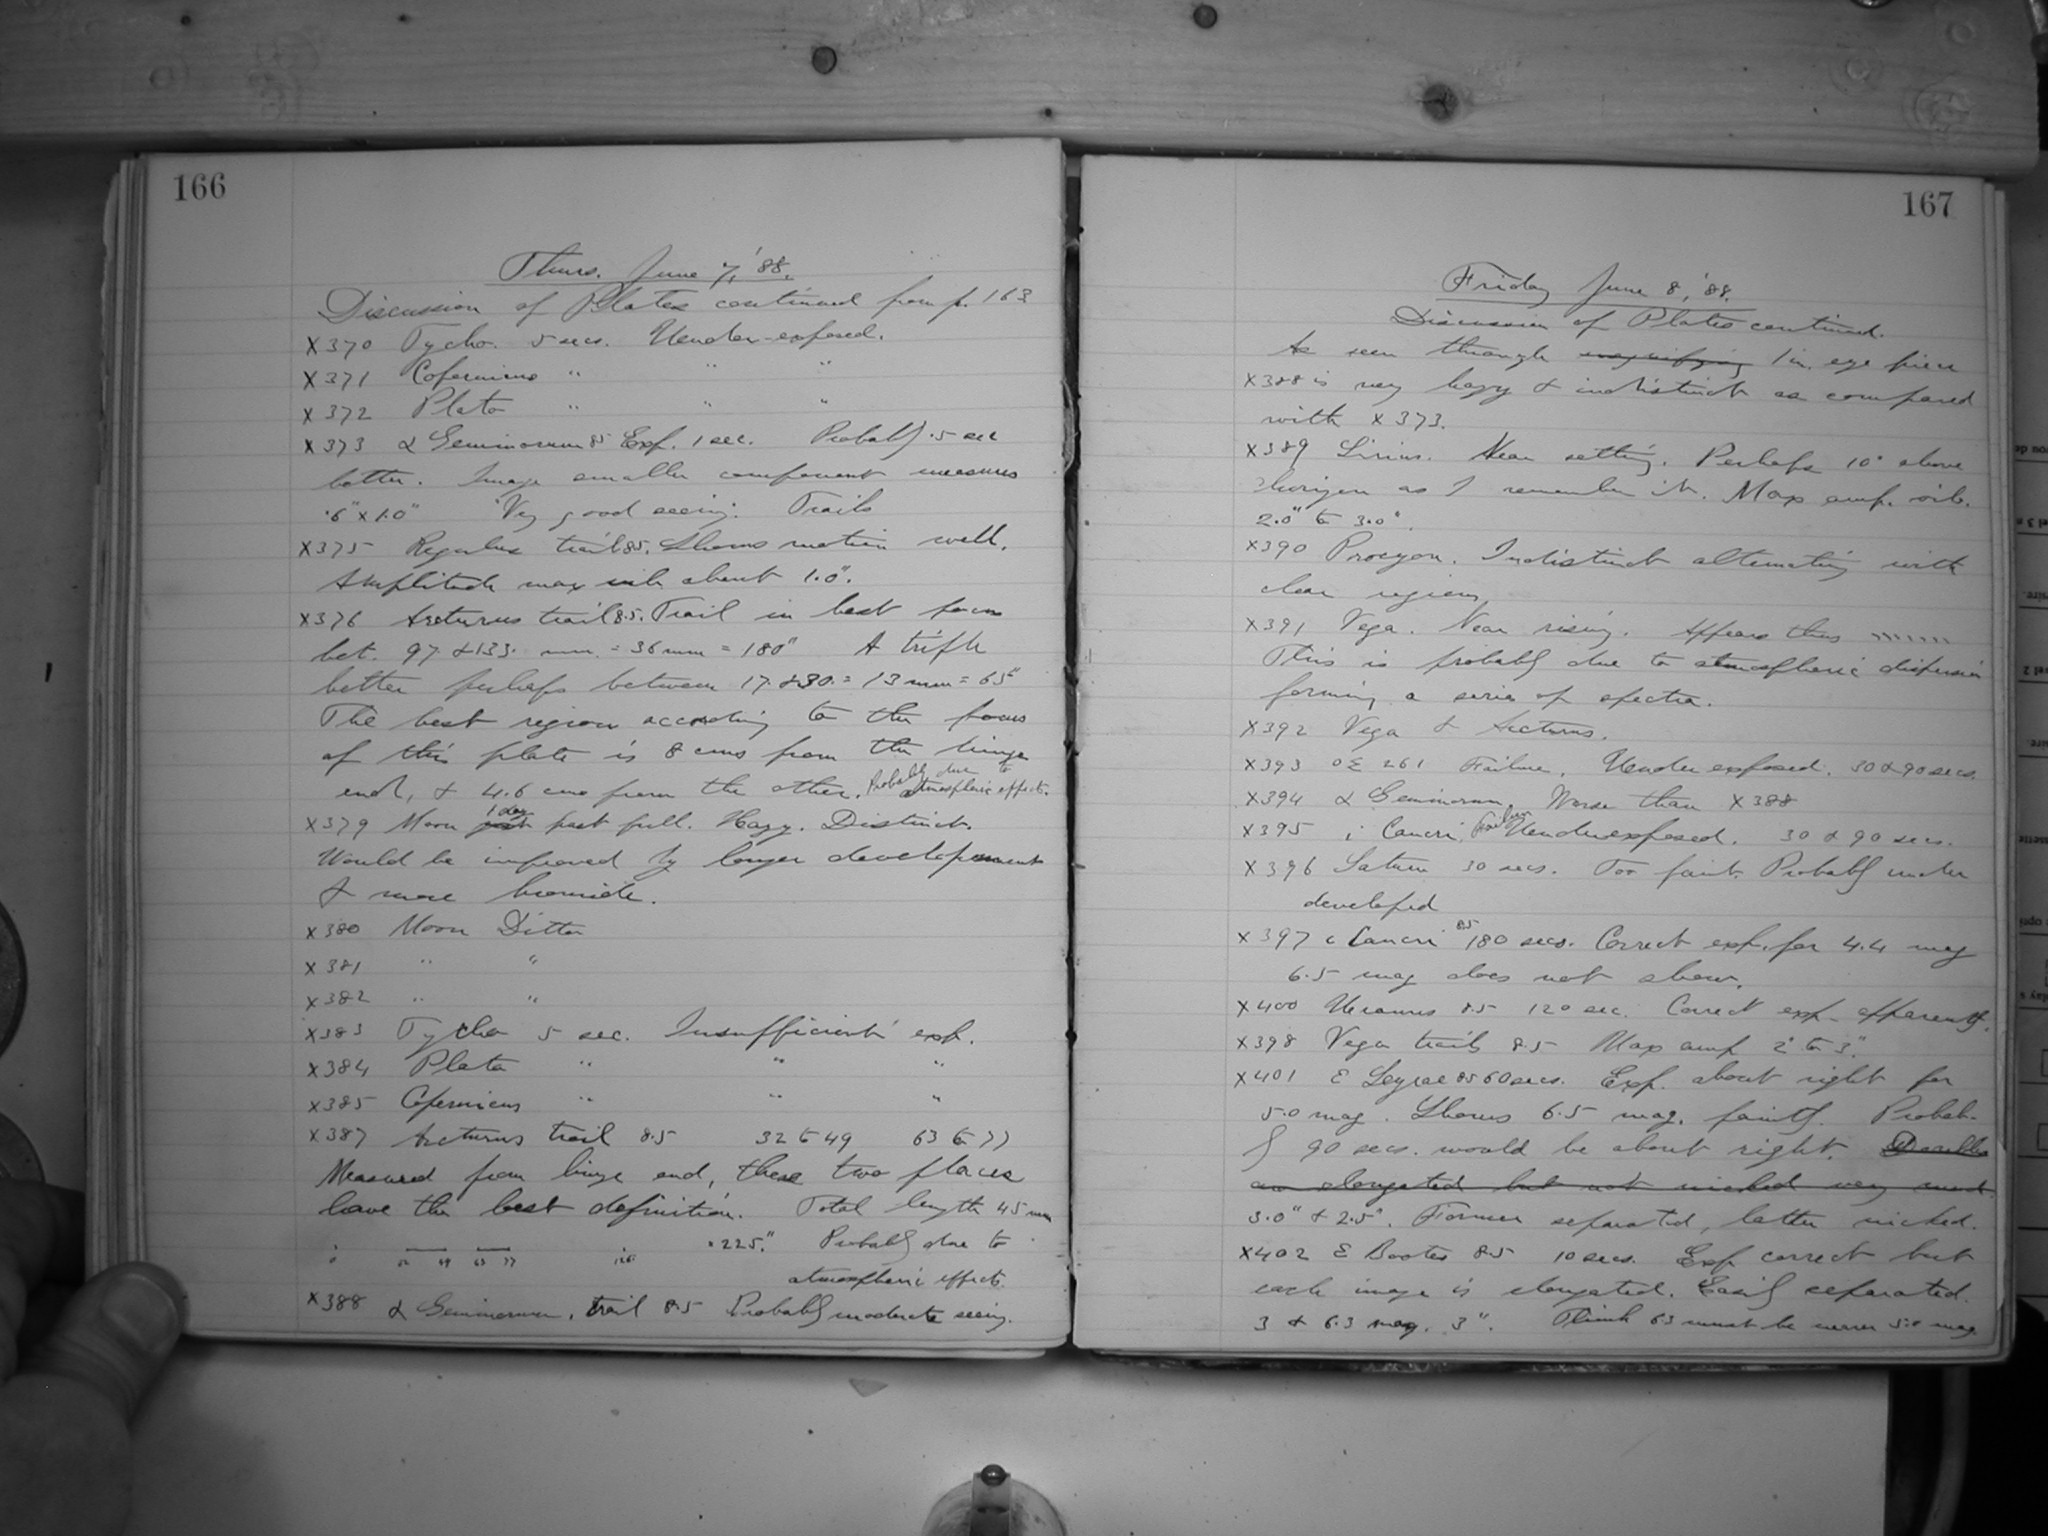 166
Thurs. June 7, '88.
Discussion of Plates continued from p. 163
X370 Tycho. 5 secs. Under-exposed.
X371 Copernicus " " "
X372 Plato " " "
X373 α Geminorum 85 Exp. 1 sec. Probably .5 sec
better. Image smaller component measures
.6" x 1.0" Very good seeing. Trails
X375 Regulus trail 85. Shows motion well.
Amplitude max vib about 1.0".
X376 Arcturus trail 8.5. Trail in best focus
bet. 97 & 133. mm. = 36 mm = 180" A trifle
better perhaps between 17 & 30. = 13 mm = 65"
The best region according to the focus
of this plate is 8 cms from the hinge
end, & 4.6 cms from the other. Probably due to atmospheric effects.
X379 Moon 1 day past full. Hazy. Distinct.
Would be improved by longer development
& more bromide.
X380 Moon Ditto
X381 " "
X382 " "
X383 Tycho 5 sec. Insufficient exp.
X384 Plato " " "
X385 Copernicus " " "
X387 Arcturus trail 8.5 32 to 49 63 to 77
Measured from hinge end, these two places
have the best definition. Total length 45 mm
0 32 49 63 77 = 225." Probably due to
atmospheric effects.
X388 α Geminorum, trail 8.5 Probably moderate seeing.
167
Friday June 8, '88.
Discussion of Plates continued.
As seen through magnifying 1 in. eye piece
X388 is very hazy & indistinct as compared
with X373.
X389 Sirius. Near setting. Perhaps 10° above
horizon as I remember it. Max amp. vib.
2.0" to 3.0".
X390 Procyon. Indistinct alternating with
clear regions
X391 Vega. Near rising. Appears thus
This is probably due to atmospheric dispersion
forming a series of spectra.
X392 Vega & Arcturus.
X393 OΣ 261 Failure. Under exposed. 30 & 90 secs.
X394 α Geminorum. Worse than X388
X395 i Cancri. Failure Underexposed. 30 & 90 secs.
X396 Saturn 30 secs. Too faint. Probably under
developed
X397 ι Cancri 85 180 secs. Correct exp. for 4.4 mag
6.5 mag does not show.
X400 Uranus 8.5 120 sec. Correct exp. apparently.
X398 Vega trails 8.5 Max amp 2" to 3".
X401 ε Lyrae 85 60 secs. Exp. about right for
5.0 mag. Shows 6.5 mag. faintly. Probab-
ly 90 secs. would be about right. Doubles
are elongated but not nicked very much.
3.0" & 2.5". Former separated, latter nicked.
X402 ε Bootes 8.5 10 secs. Exp correct but
each image is elongated. Easily separated.
3 & 6.3 mag. 3". Think 6.3 must be nearer 5.0 mag.